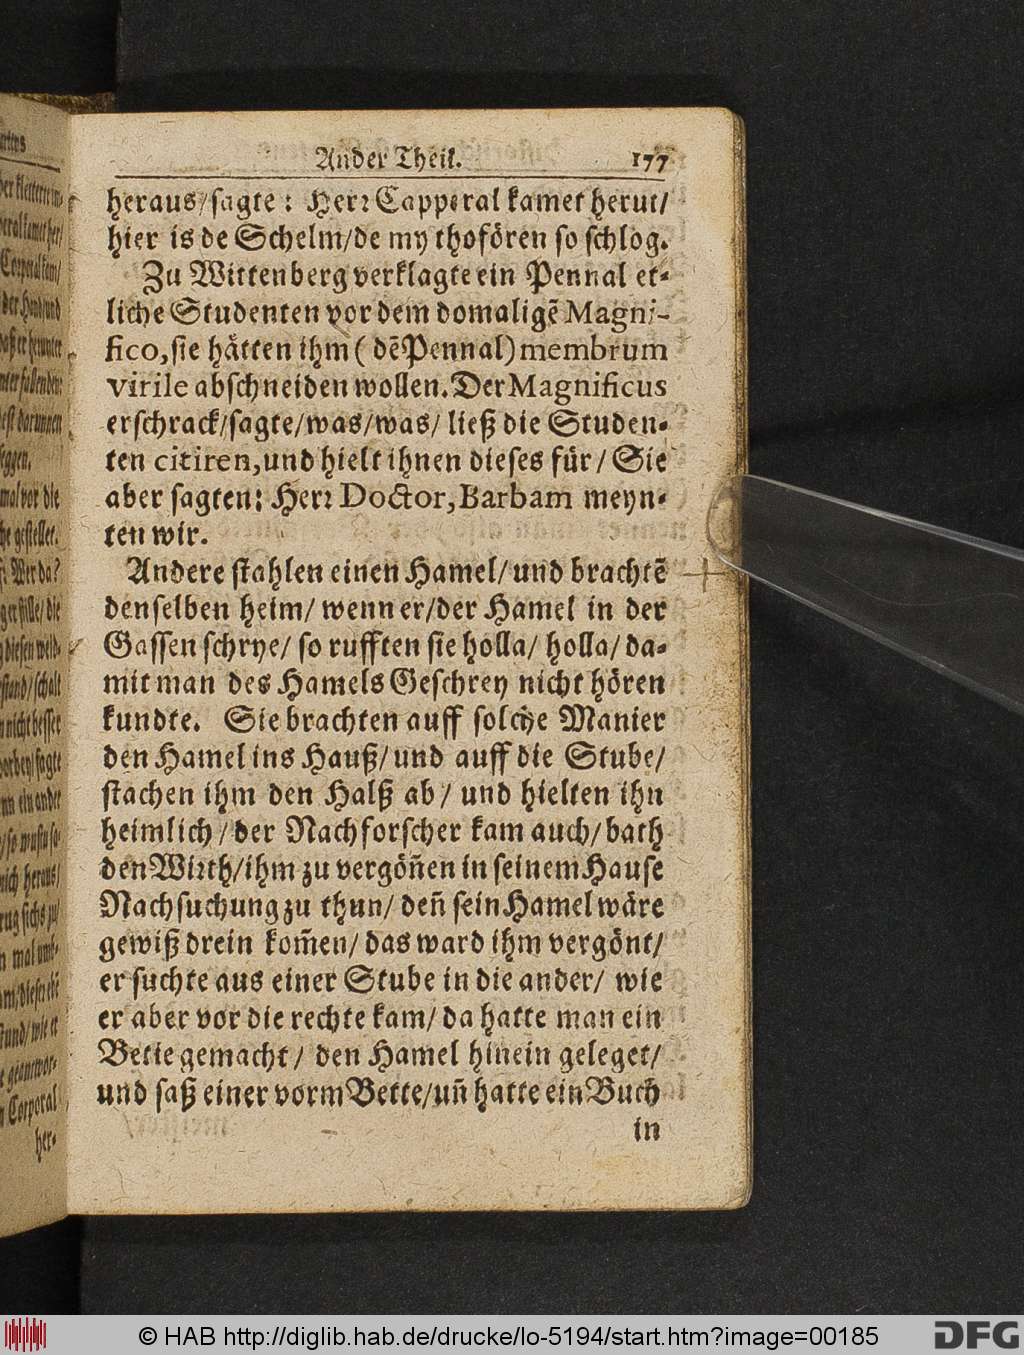 Ander Theil. 177
heraus/sagte: Herr Capperal kamet herut/
hier is de Schelm/de my thofören so schlog.
Zu Wittenberg verklagte ein Pennal et-
liche Studenten vor dem domaligē Magni-
fico, sie hätten ihm (dē Pennal) membrum
virile abschneiden wollen. Der Magnificus
erschrack/sagte/was/was/ ließ die Studen-
ten citiren, und hielt ihnen dieses für/ Sie
aber sagten: Herr Doctor, Barbam meyn-
ten wir.
Andere stahlen einen Hamel/und brachtē
denselben heim/ wenn er/der Hamel in der
Gassen schrye/ so rufften sie holla/ holla/ da-
mit man des Hamels Geschrey nicht hören
kundte. Sie brachten auff solche Manier
den Hamel ins Hauß/und auff die Stube/
stachen ihm den Halß ab/ und hielten ihn
heimlich/der Nachforscher kam auch/bath
den Wirth/ihm zu vergöñen in seinem Hause
Nachsuchung zu thun/ deñ sein Hamel wäre
gewiß drein kom̃en/ das ward ihm vergönt/
er suchte aus einer Stube in die ander/ wie
er aber vor die rechte kam/ da hatte man ein
Bette gemacht/ den Hamel hinein geleget/
und saß einer vorm Bette/uñ hatte ein Buch
in
© HAB http://diglib.hab.de/drucke/lo-5194/start.htm?image=00185
DFG